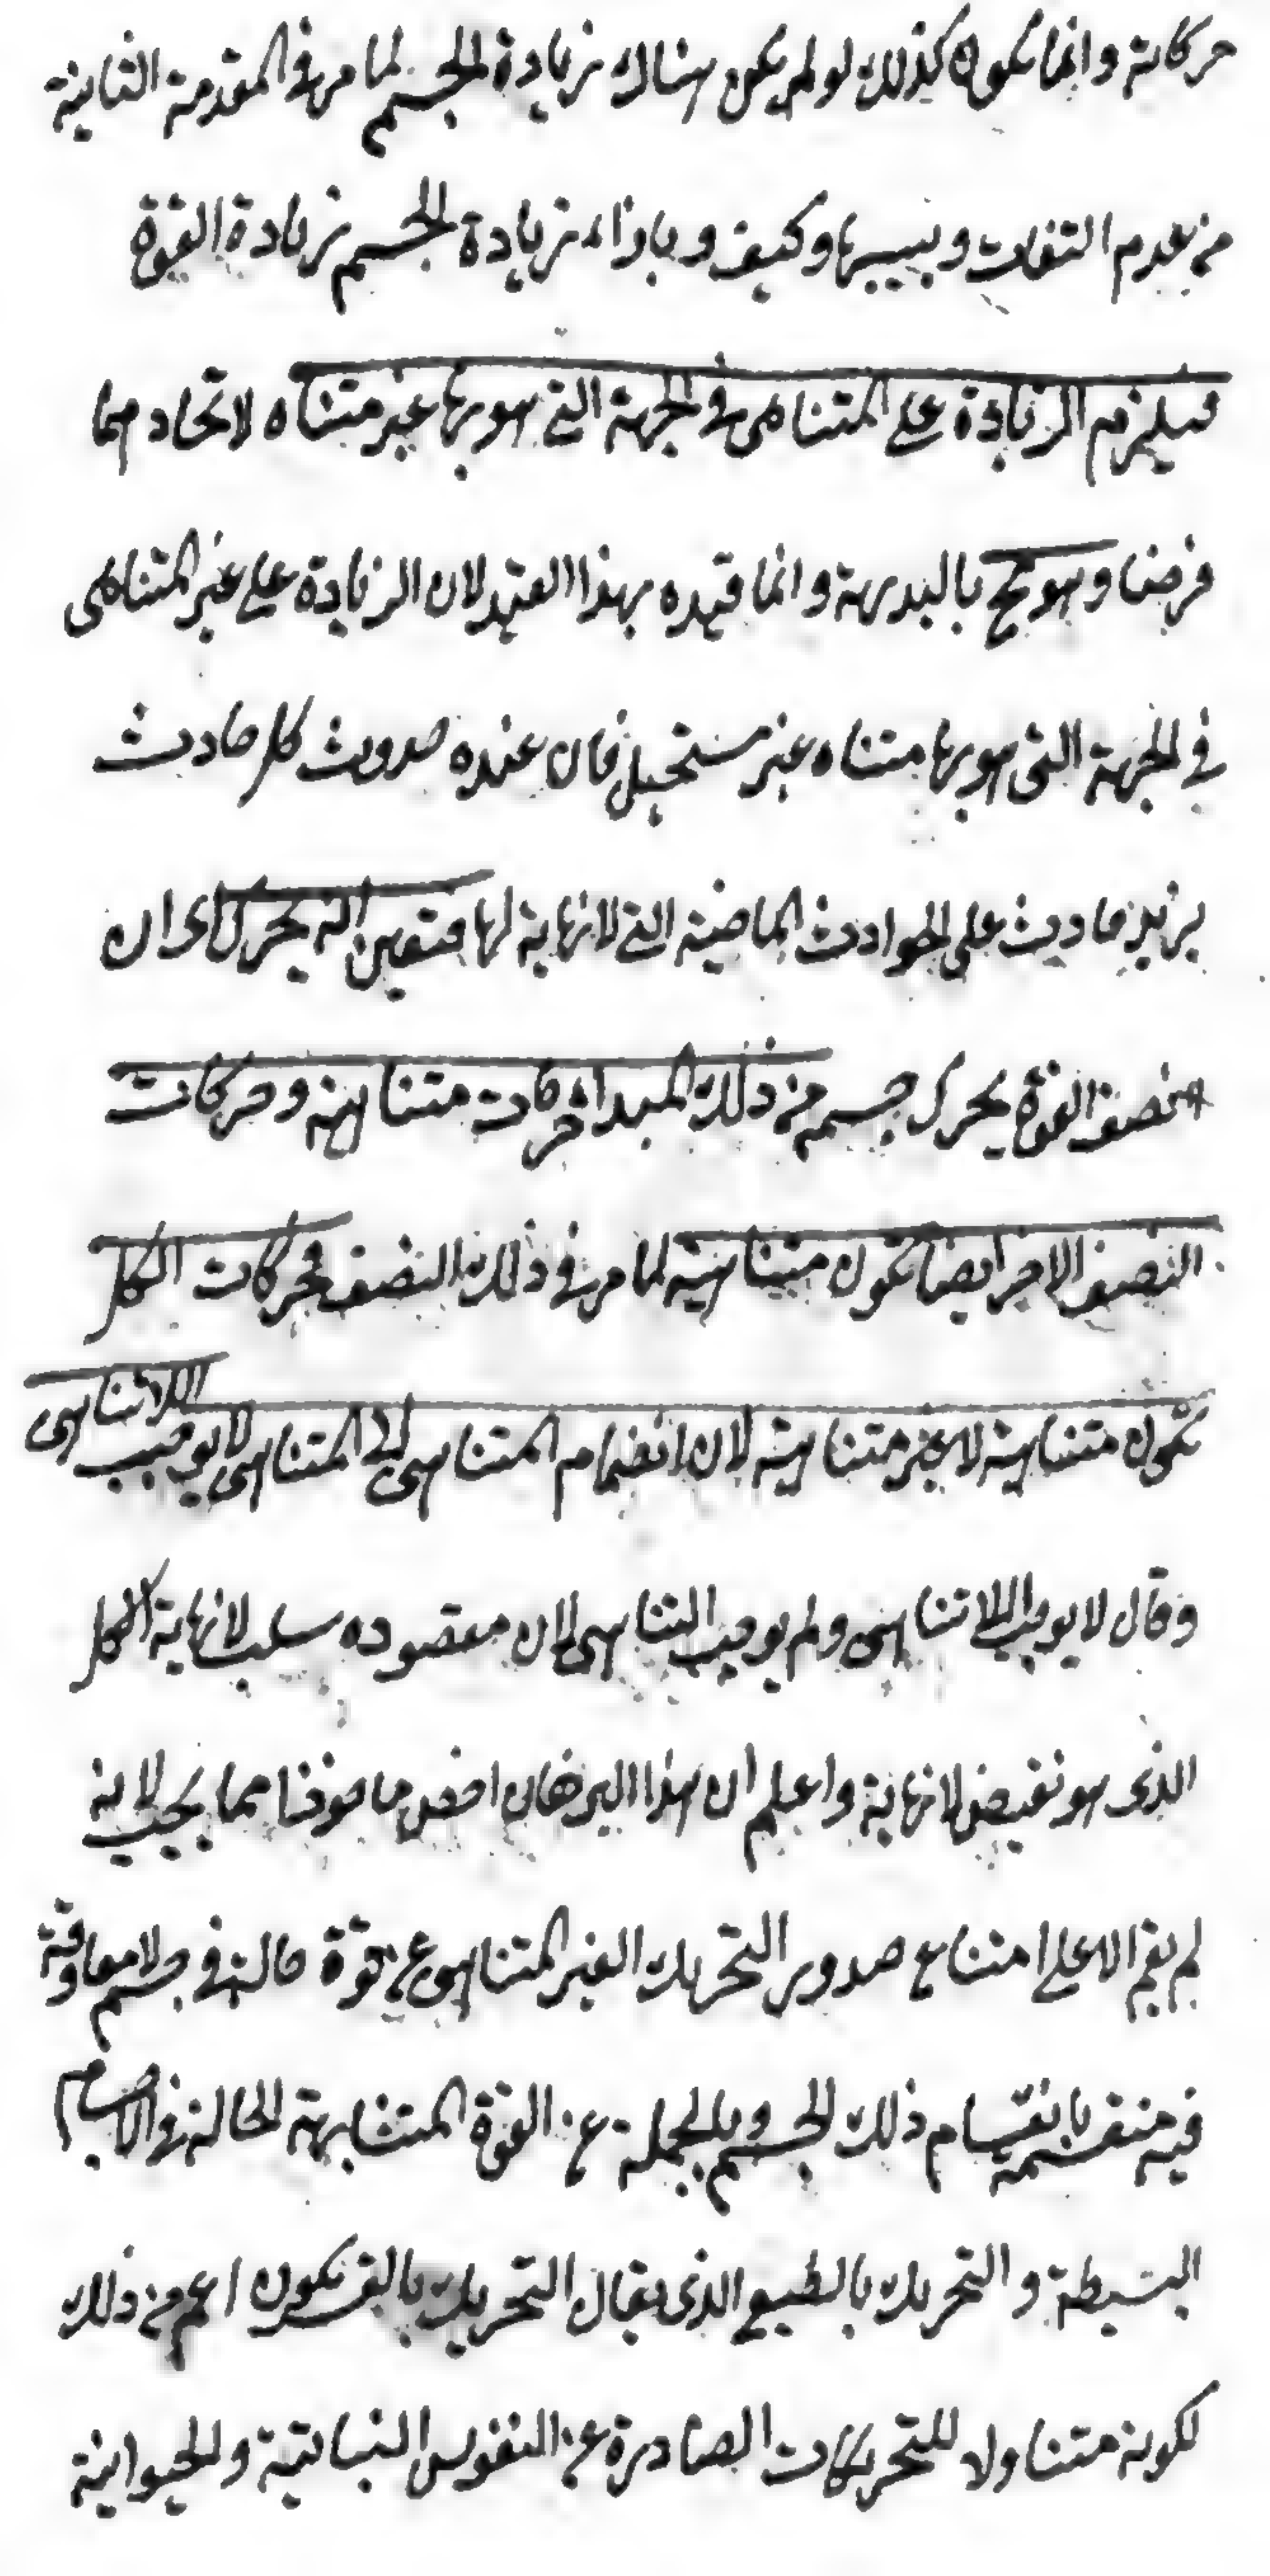 حركاته وانما يكون كذلك لو لم يكن هناك زيادة الجسم لما مر في المقدمة الثانية
من عدم التفات وبينها وكيف وبازاء زيادة الجسم زيادة القوة
فيلزم الزيادة على المتناهى في الجهة التي هو بها غير متناه لاتحاد مبدا
فرضنا وهو مح بالبديهة وانما قيده بهذا القيد لان الزيادة على غير المتناهى
في الجهة التى هو بها متناه غير مستحيل فان عنده حدوث كل حادث
يزيد حادث على الحوادث الماضية التي لا نهاية لها فتعين انه يحرك اى ان
نصف القوة يحرك جسم من ذلك المبدا حركات متناهية وحركات
النصف الاخر ايضا تكون متناهية لما مر في ذلك النصف فحركات الكل
تكون متناهية لا غير متناهية لان انضمام المتناهى الى المتناهى لا يوجب اللاتناهى
وقال لا يوجب اللاتناهى ولم يوجب التناهى لان مقصوده سلب لا نهاية الكل
الذى هو نقيض لا نهاية واعلم ان هذا البرهان اخص ماخوذا مما يجب لانه
لم يقم الا على امتناع صدور التحريك الغير المتناهى عن قوة حالة في جسم لا معاوقة
فيه منقسمة بانقسام ذلك الجسم وبالجملة عن القوة المتشابهة الحالة في الاجسام
البسيطة والتحريك بالطبع الذى يقابل التحريك بالقسر يكون اعم من ذلك
لكونه متناولا للتحريكات الصادرة عن النفوس النباتية والحيوانية